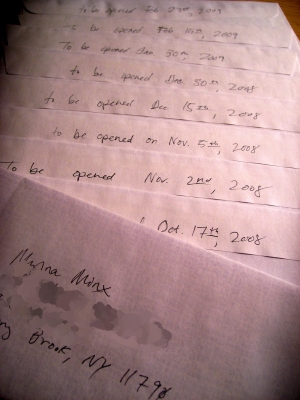 to be opened Feb 27th, 2009
To be opened Feb 10th, 2009
To be opened Jan 30th, 2009
to be opened Dec 30th, 2008
to be opened Dec 15th, 2008
to be opened on Nov. 5th, 2008
To be opened Nov. 2nd, 2008
" Oct. 17th, 2008
Mynna Minx
Brook, NY 11790